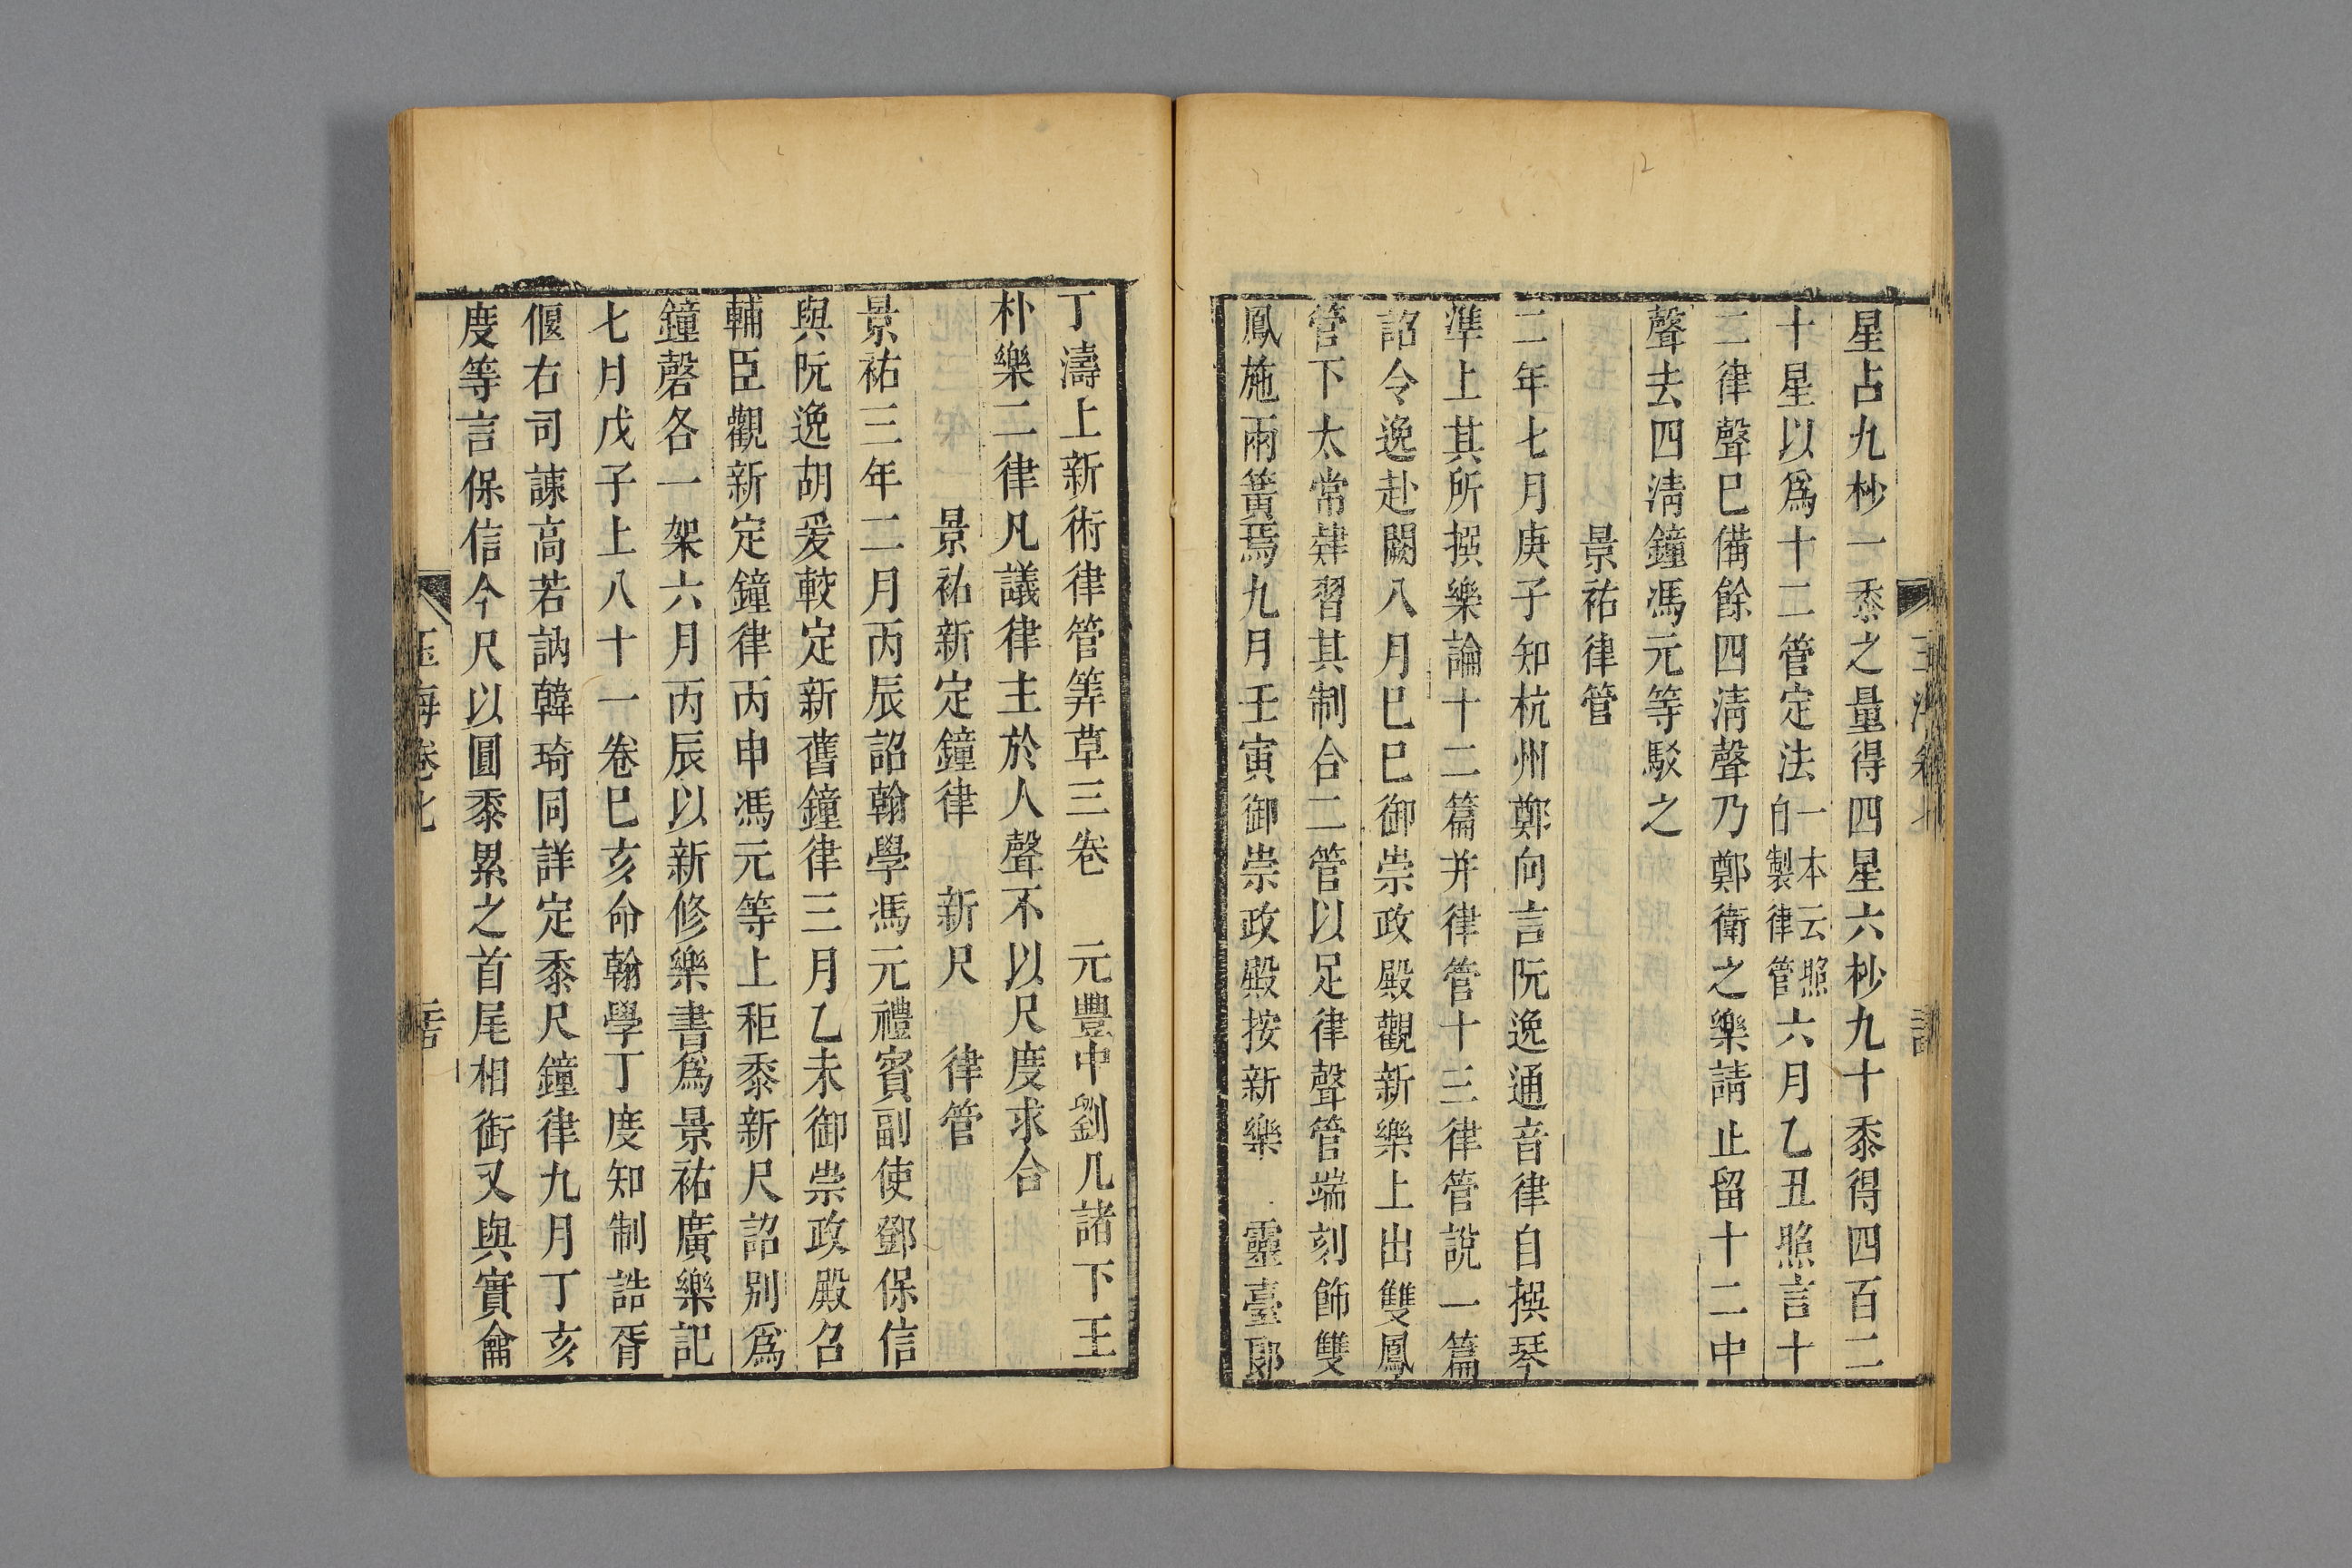 星占九杪一黍之量得四星六杪九十黍得四百二
十星以爲十二管定法一本云照自製律管六月乙丑照言十
二律聲已備餘四清聲乃鄭衛之樂請止留十二中
聲去四清鐘馮元等駁之
景祐律管
二年七月庚子知杭州鄭向言阮逸通音律自撰琴
準上其所撰樂論十二篇并律管十三律管說一篇
詔令逸赴闕八月巳巳御崇政殿觀新樂上出雙鳳
管下太常肄習其制合二管以足律聲管端刻飾雙
鳳施兩簧焉九月壬寅御崇政殿按新樂 靈臺郎
丁濤上新術律管筭草三卷 元豐中劉几諸下王
朴樂二律凡議律主於人聲不以尺度求合
景祐新定鐘律 新尺 律管
景祐三年二月丙辰詔翰學馮元禮賓副使鄧保信
與阮逸胡爰較定新舊鐘律三月乙未御崇政殿召
輔臣觀新定鐘律丙申馮元等上秬黍新尺詔別爲
鐘磬各一架六月丙辰以新修樂書爲景祐廣樂記
七月戊子上八十一卷巳亥命翰學丁度知制誥胥
偃右司諫高若訥韓琦同詳定黍尺鐘律九月丁亥
度等言保信今尺以圓黍累之首尾相銜又與實龠
玉海卷七